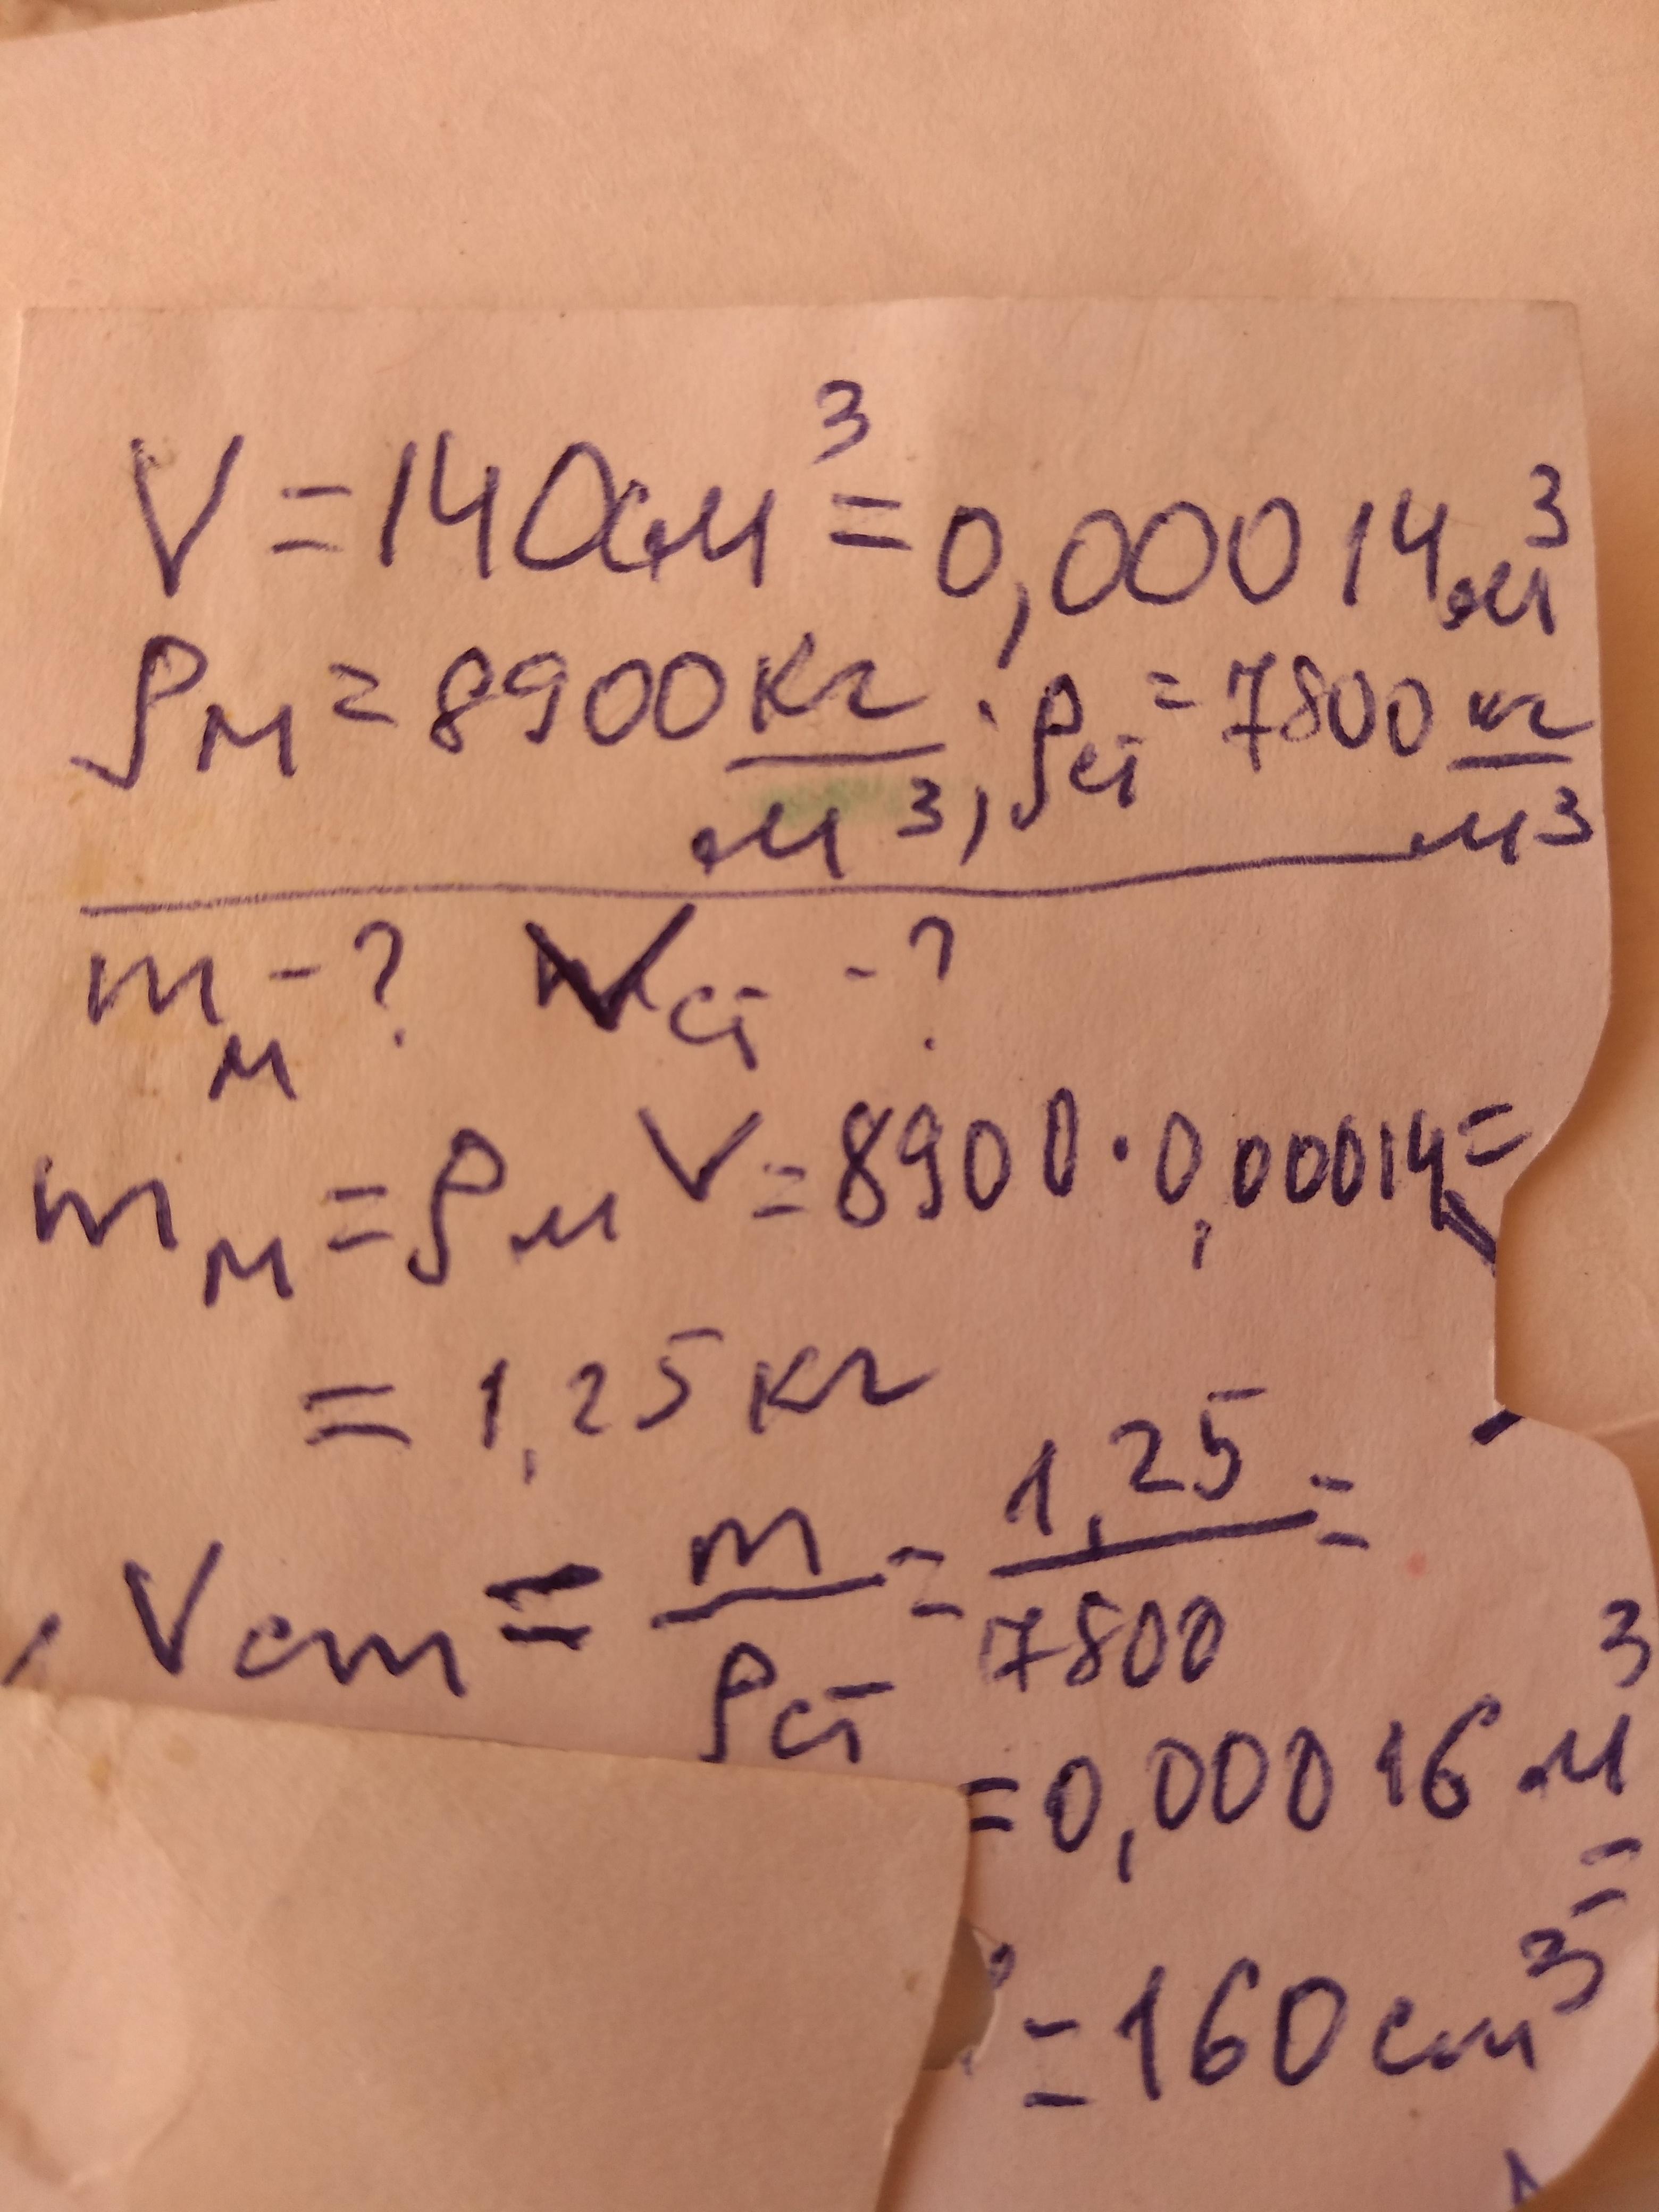 V = 140см³ = 0,00014м³
ρм = 8900 кг/м³; ρст = 7800 кг/м³
mм - ? Vст - ?
mм = ρм V = 8900 · 0,00014 =
= 1,25 кг
Vст = m/ρст = 1,25/7800 =
= 0,00016 м³ =
= 160 см³